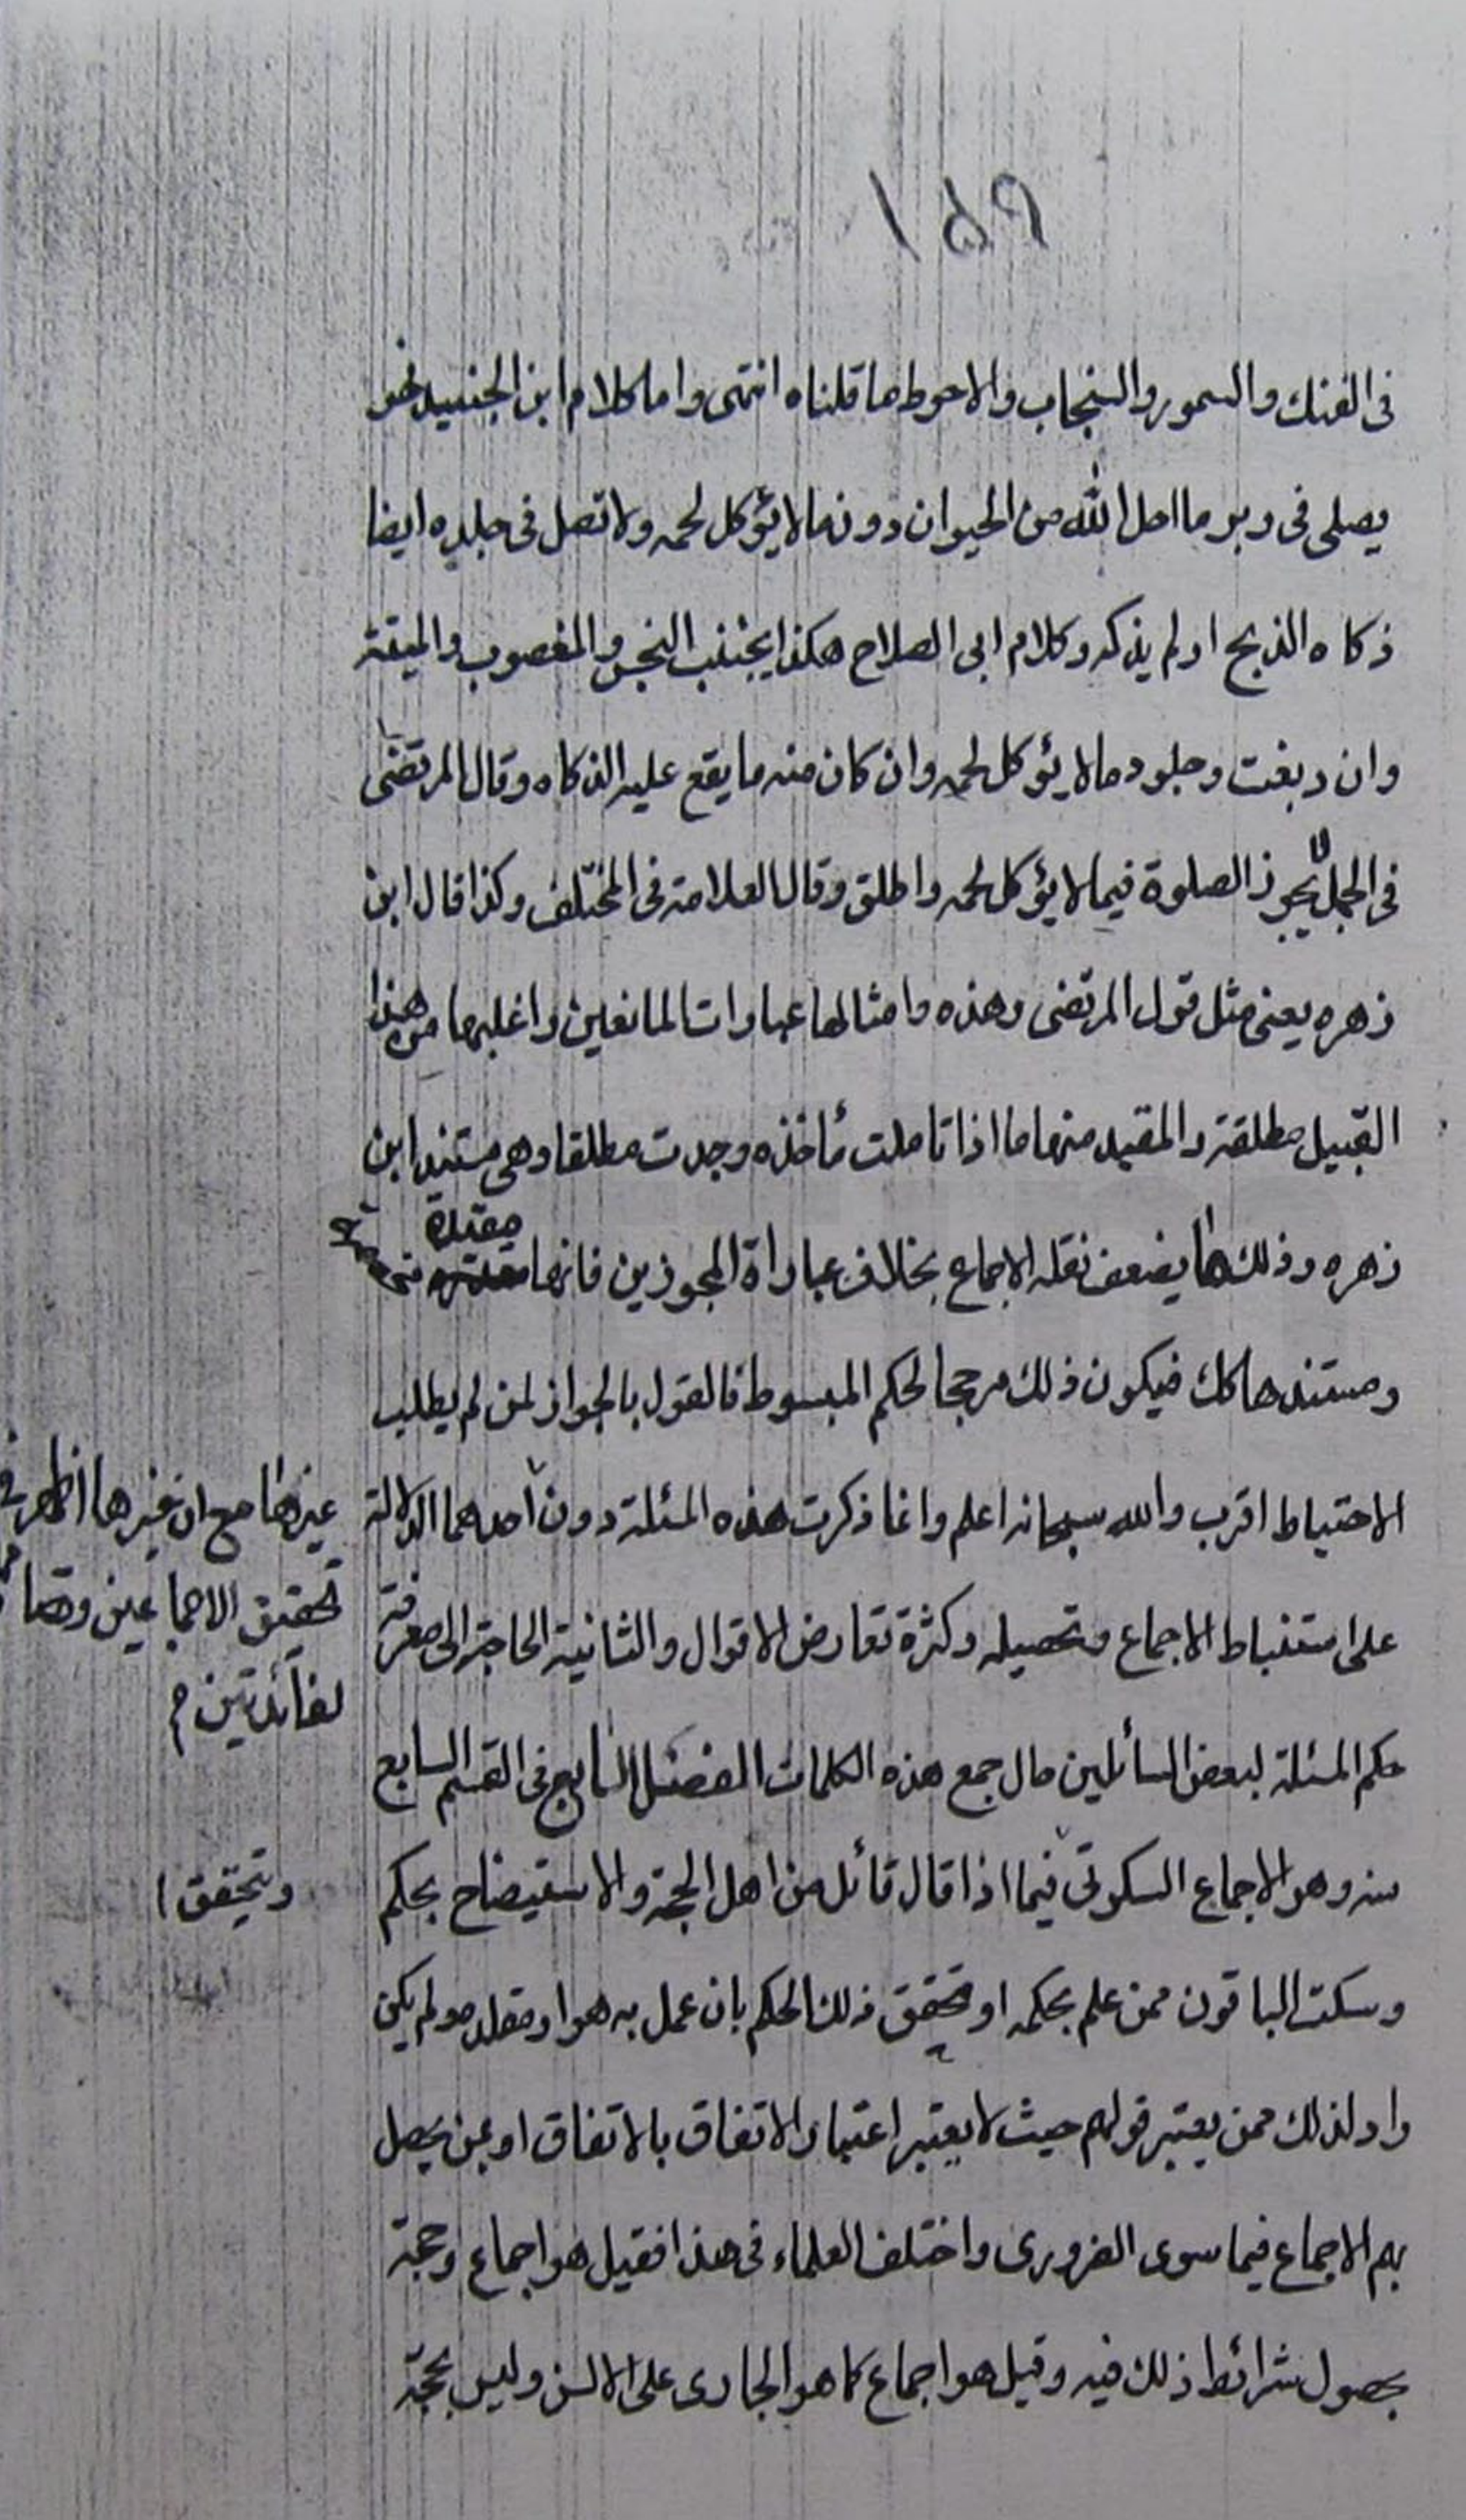 فى الفنك والسمور والسنجاب والاحوط ما قلناه انتهى واما كلام ابن الجنيد فهو
يصلى فى وبر ما احل الله من الحيوان دون ما لا يؤكل لحمه ولا تصل فى جلده ايضا
ذكاه الذبح او لم يذكه وكلام ابى الصلاح هكذا يجتنب النجس والمغصوب والميتة
وان دبغت وجلود ما لا يؤكل لحمه وان كان منه ما يقع عليه الذكاه وقال المرتضى
فى الجمل لا يجوز الصلوة فيما لا يؤكل لحمه واطلق وقال العلامة فى المختلف وكذا قال ابن
زهره يعنى مثل قول المرتضى وهذه وامثالها عبارات المانعين واغلبها من هذا
القبيل مطلقة والمقيد منها ما اذا تاملت مأخذه وجدت مطلقا وهى مستند ابن
زهره وذلك مما يضعف نقله الاجماع بخلاف عباراة المجوزين فانها مقيدة
ومستندها كك فيكون ذلك مرجحا لحكم المبسوط فالقول بالجواز لمن لم يطلب
الاحتياط اقرب والله سبحانه اعلم وانما ذكرت هذه المسئلة دون احدهما الدلالة
غيرها مع ان غيرها اظهر فى
تحقيق الاجماعين
لفائدتين
على استنباط الاجماع وتحصيله وكثرة تعارض الاقوال والثانية الحاجة الى معرفة
حكم المسئلة لبعض السائلين حال جمع هذه الكلمات الفصل السابع فى القسم السابع
منه وهو الاجماع السكوتى فيما اذا قال قائل من اهل الحجة والاستيضاح بحكم
وتحقق
وسكت الباقون ممن علم بحكمه او تحقق ذلك الحكم بان عمل به هو او مقلده ولم يكن
راد لذلك ممن يعتبر قولهم حيث لا يعتبر اعتبار الاتفاق بالاتفاق او بمن يحصل
بهم الاجماع فيما سوى الضرورى واختلف العلماء فى هذا فقيل هو اجماع وحجة
بحصول شرائط ذلك فيه وقيل هو اجماع كما هو الجارى على الالسن وليس بحجة